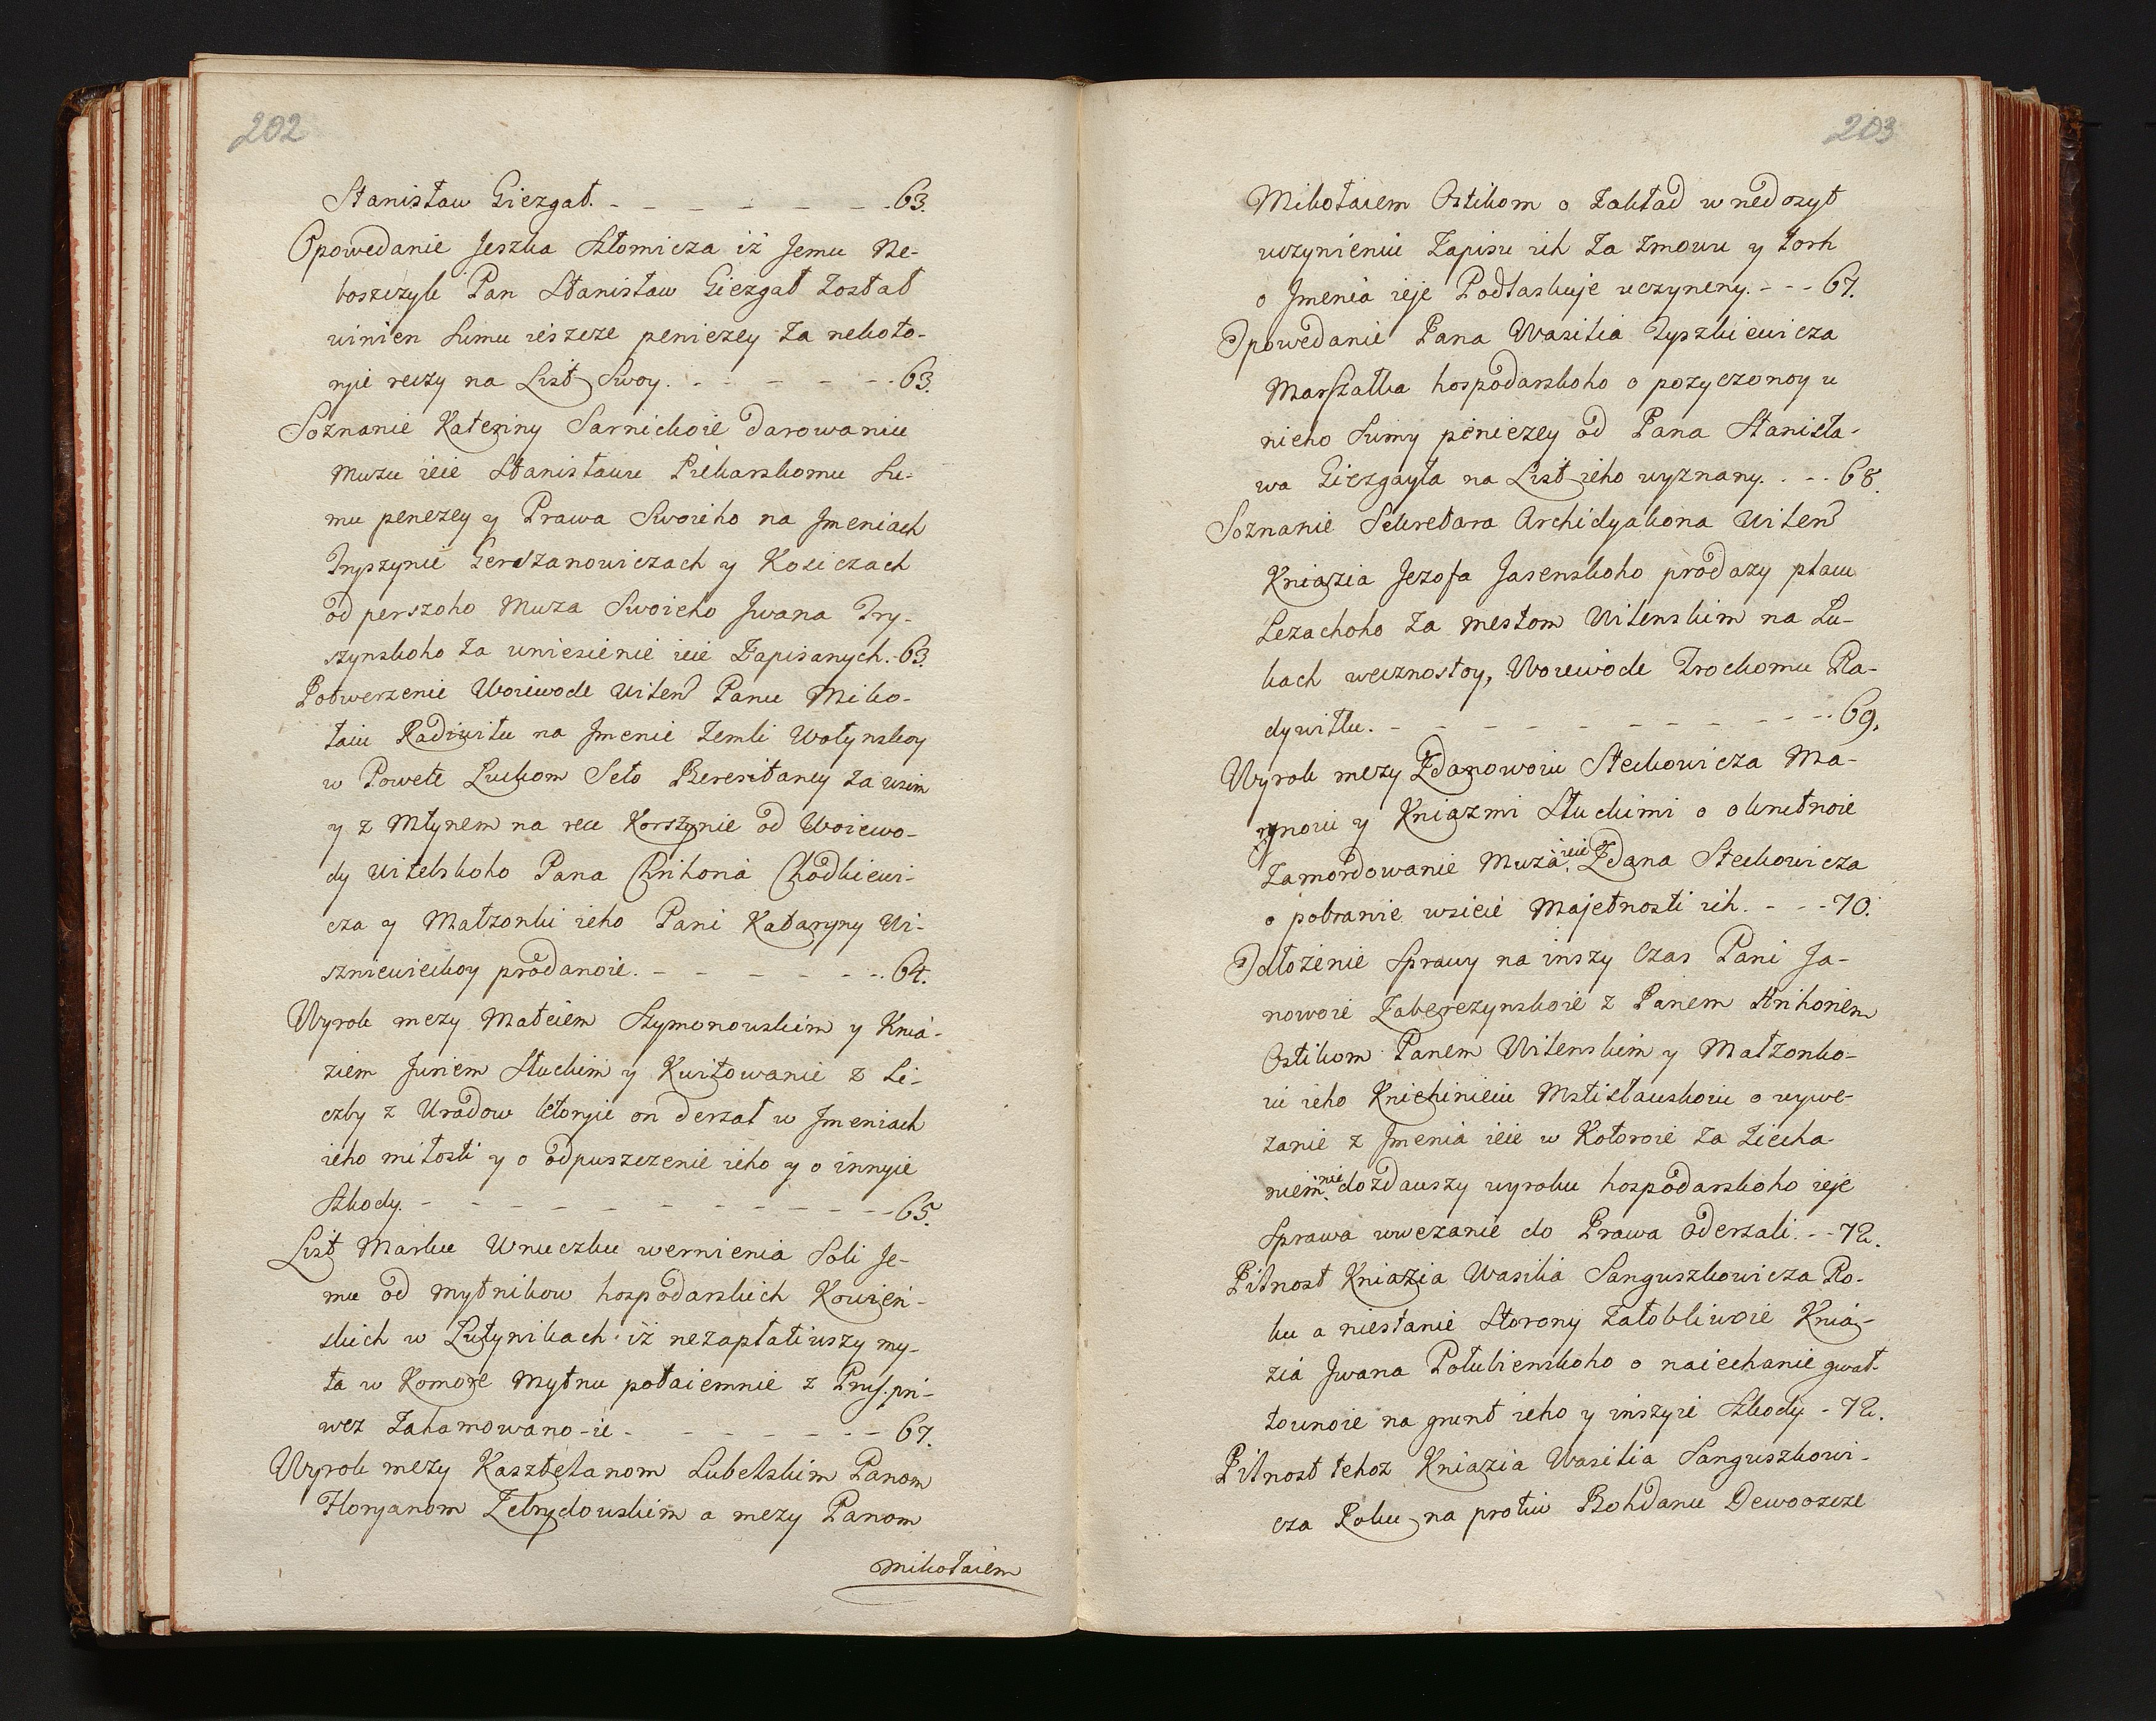 202
Stanisław Giezgał. - - - - - - - 63.
Opowedanie Jeszka Szłomicza iż Jemu Ne-
boszczyk Pan Stanisław Giezgał został
winien Sumu ieszcze peniezey za nekoto-
ryie reczy na List Swoy. - - - - - - 63.
Soznanie Kateriny Sarnickoie darowaniu
Mużu ieie Stanisławu Piekarskomu Su-
mu penezey y Prawa Swoieho na Jmeniach
Tryszynie Gerszanowiczach y Kosiczach
od perszoho Muża Swoieho Jwana Try-
szynskoho za wniesienie ieie Zapisanych. - 63.
Potwerzenie Woiewode Wilen Panu Miko-
łaiu Radiwiłu na Jmenie Zemli Wołynskoy
w Powete Luckom Seło Beresłtaney za wsim
y z Młynem na rece Korszynie od Woiewo-
dy Witebskoho Pana Chrihoria Chodkiewi-
cza y Małżonki ieho Pani Kataryny Wi-
szniewieckoy prodanoie. - - - - - - - 64.
Wyrok mezy Mateiem Szymonowskim y Knia-
ziem Juriem Słuckim y Kwitowanie z Li-
czby z Uradow kotoryie on derzał w Jmeniach
ieho miłosti y o odpuszczenie ieho y o innyie
Szkody. - - - - - - - - - - 65.
List Marku Wnuczku wernienia Soli Je-
mu od mytnikow hospodarskich Kowien-
skich w Lutynikach iż nezapłatiwszy my-
ta w Komore Mytnu potaiemnie z Prus pri-
wez Zahamowano-ie - - - - - - - 67.
Wyrok mezy Kasztelanom Lubelskim Panom
Floryanom Zebrydowskim a mezy Panom
Mikołaiem
203
Mikołaiem Ostikom o Zakład w nedosyt
uczynieniu Zapisu ich za Zmowu y Torh
o Jmenia ieje Podłaskuje uczyneny. - - - 67.
Opowedanie Pana Wasilia Tyszkiewicza
Marszałka hospodarskoho o pozyczonoy u
nieho Sumy pieniezey od Pana Stanisła-
wa Giezgayła na List ieho wyznany. - - - 68.
Soznanie Sekretara Archidyakona Wilen
Kniazia Jezofa Jasenskoho prodaży płacu
Leżachoho za mestom Wilenskim na Łu-
kach wecznostoy, Woiewode Trockomu Ra-
dywiłłu. - - - - - - - - - - 69.
Wyrok mezy Zdanowoiu Steckowicza Ma-
rynoiu y Kniazmi Słuckimi o okrutnoie
Zamordowanie Muża ieie Zdana Steckowicza
o pobranie wsieie Majetnosti ich. - - - 70.
Odłożenie Sprawy na inszy Czas Pani Ja-
nowoie Zaberezynskoie z Panem Hrihoriem
Ostikom Panem Wilenskim y Małżonko-
iu ieho Kniehinieiu Mstisławskoiu o wywe-
zanie z Jmenia ieie w Kotoroie za Ziecha-
niem nie dożdawszy wyroku hospodarskoho ieje
Sprawa uwezanie do Prawa oderzali. - - 72.
Pilnost Kniazia Wasilia Sanguszkowicza Ro-
ku a niestanie Storony żałobliwoie Knia-
zia Jwana Połubienskoho o naiechanie gwał-
townoie na grunt ieho y inszyie Szkody - 72.
Pilnost tehoż Kniazia Wasilia Sanguszkowi-
cza Roku na protiw Bohdanu Dewoczcze